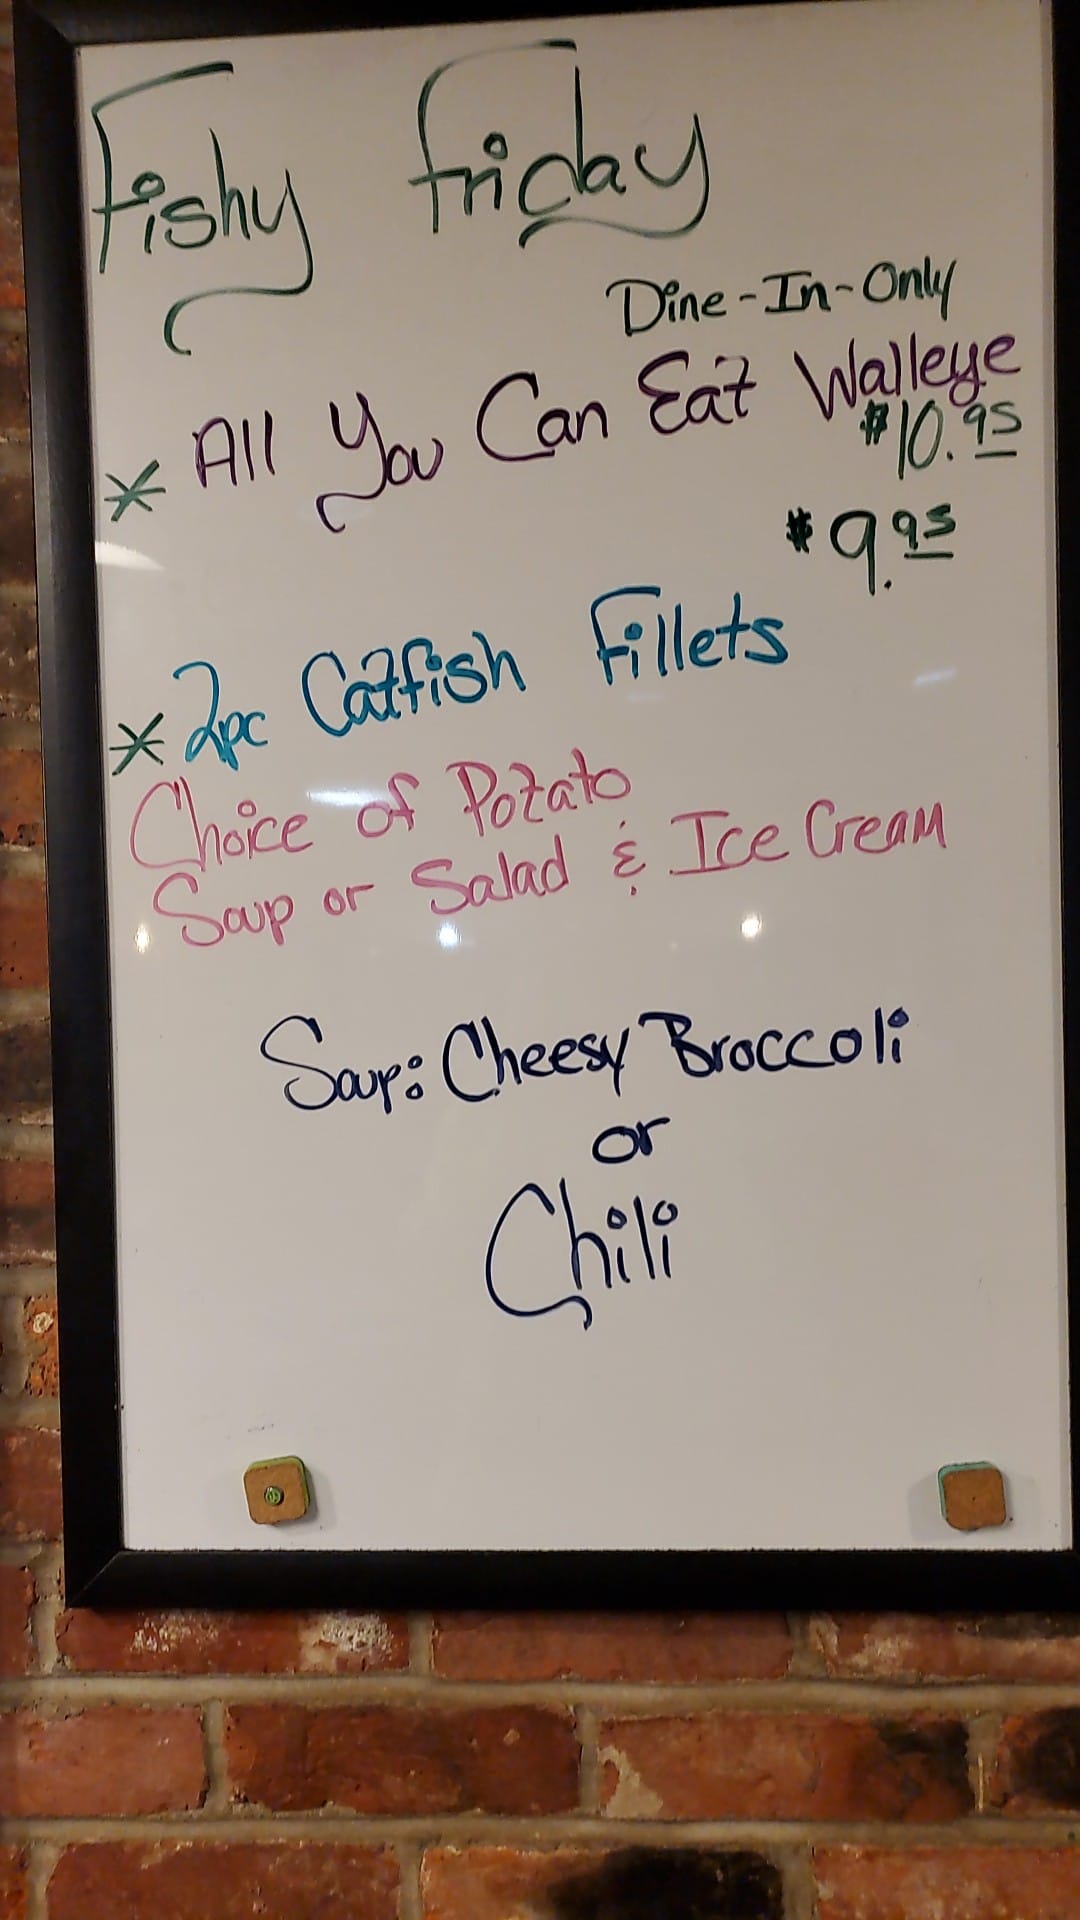 Fishy Friday
Dine-In-Only
* All You Can Eat Walleye
$10.95
$9.95
* 2pc Catfish Fillets
Choice of Potato
Soup or Salad & Ice Cream
Soup: Cheesy Broccoli
or
Chili